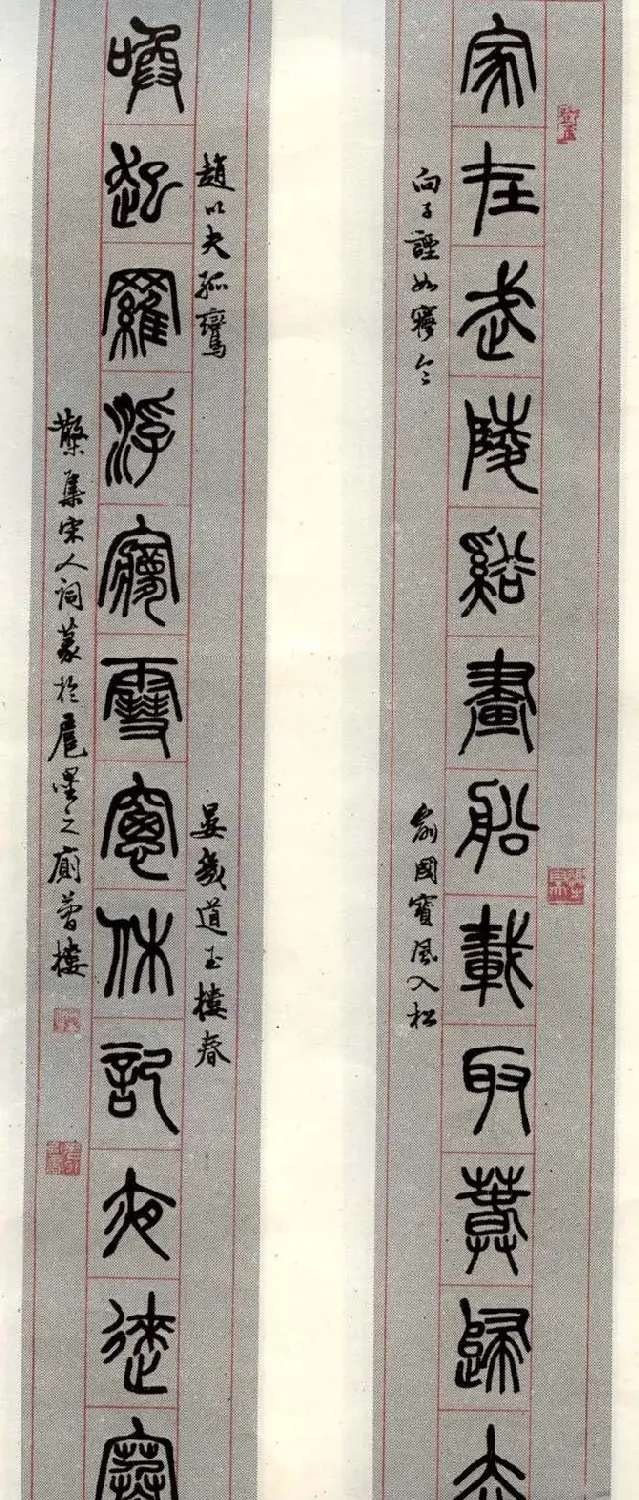 家在武陵谿畫船載取春歸去
向子諲如夢令
俞國寶風入松
趙以夫孤鸞
晏幾道玉樓春
喚起羅浮夢雪窗休記夜來寒
集宋人詞篆於扈之樓